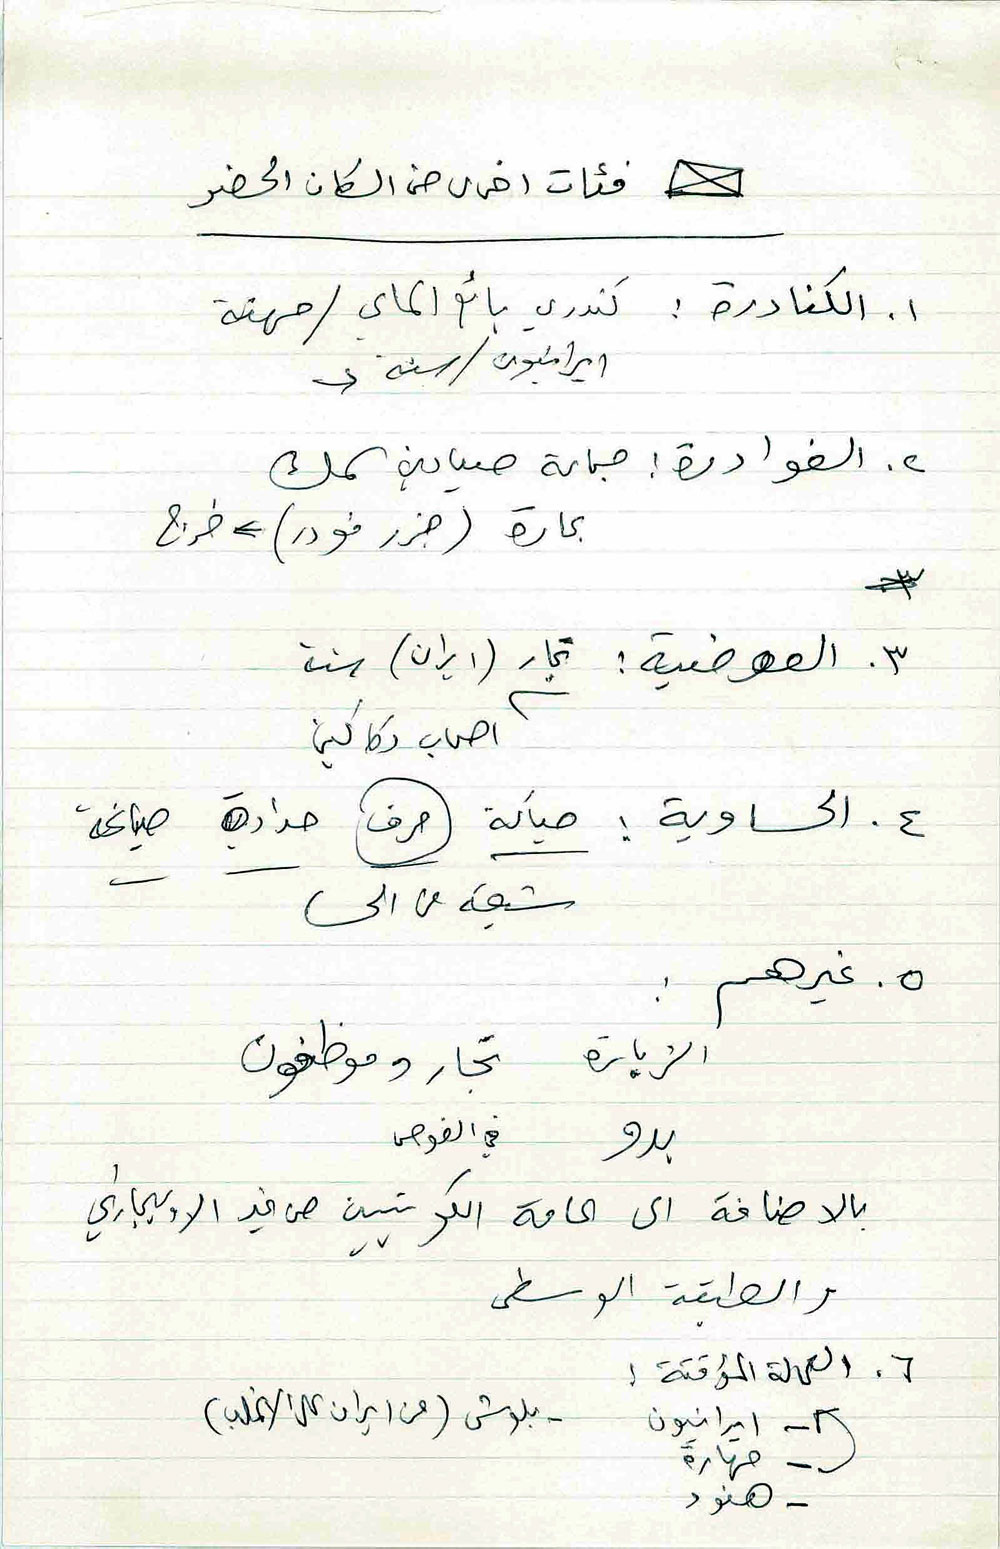 فئات اخرى من السكان الحضر
١. الكنادرة : كندري بائع الماي / مهنة
ايرانيون / سنة
٢. الفوادرة : جماعة صيادين سمك
بحارة (جزر فودر) > خرج
٣
٣. العوضية : تجار (ايران) سنة
اصحاب دكاكين
٤. الحساوية : حياكة حرف حدادة صياغة
شيعة من الحسا
٥. غيرهم :
الزبارة تجار وموظفون
بدو في الغوص
بالاضافة الى عامة الكويتيين من غير
والطبقة الوسطى
٦. العمالة المؤقتة :
- ايرانيون - بلوش (من ايران على الاغلب)
- مهارة
- هنود